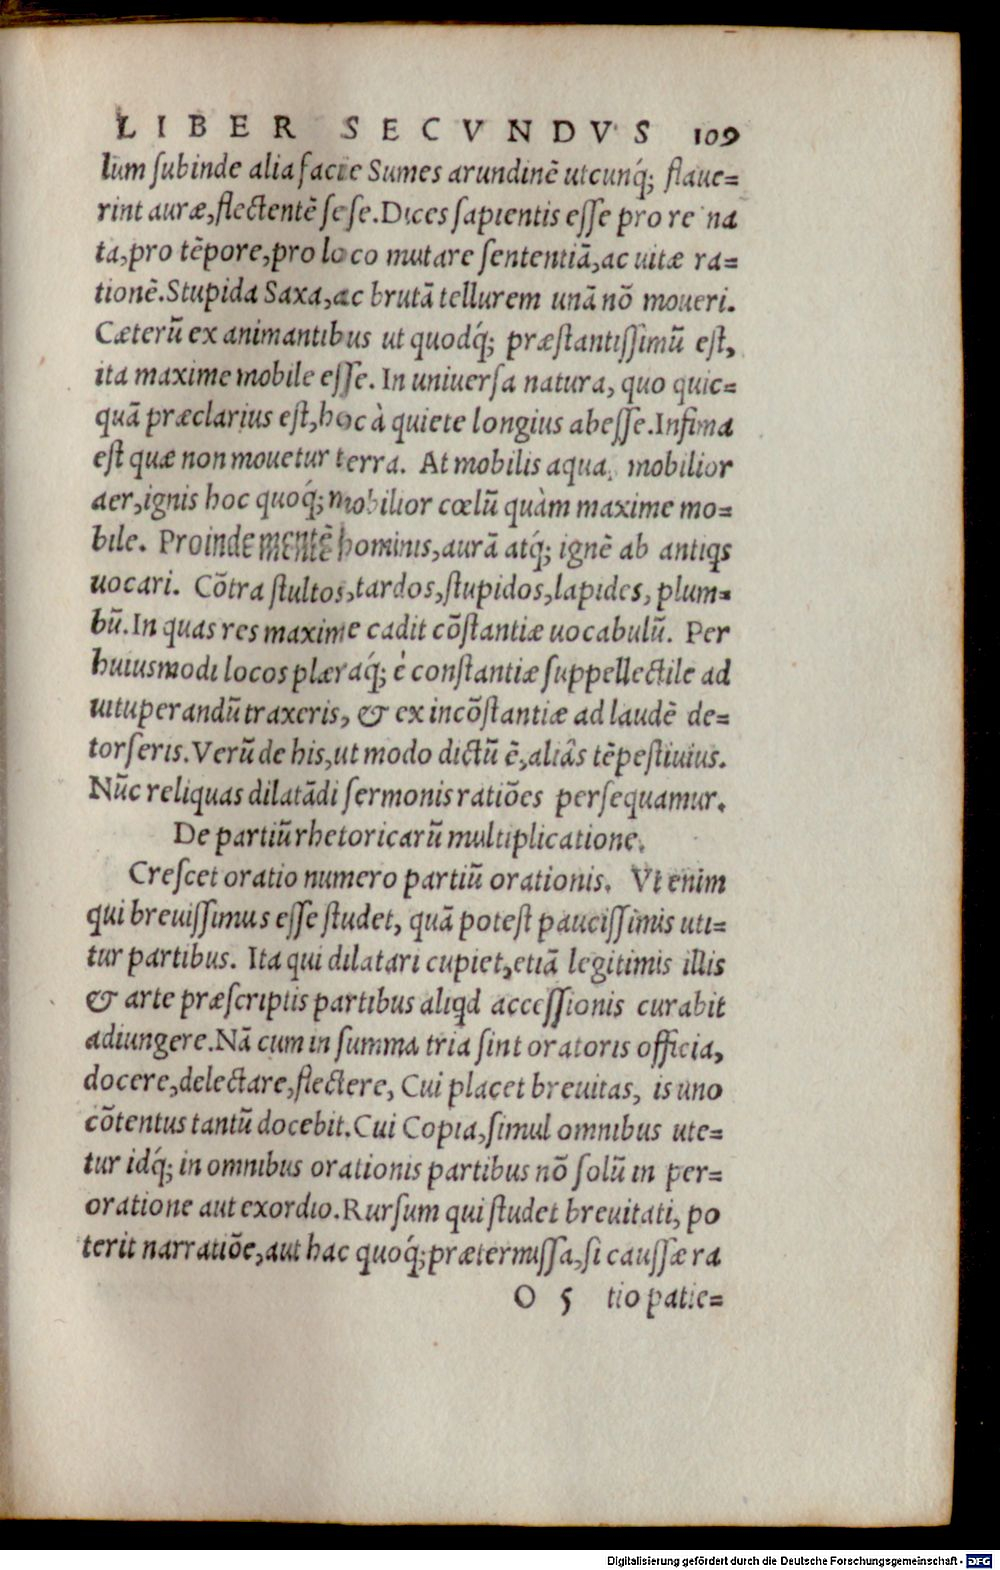 LIBER SECVNDVS 109
lum ſubinde alia facie Sumes arundinē utcunq́; flaue=
rint auræ, flectentē ſeſe. Dices ſapientis eſſe pro re na
ta, pro tēpore, pro loco mutare ſententiā, ac uitæ ra=
tionē. Stupida Saxa, ac brutā tellurem unā nō moueri.
Cæterū ex animantibus ut quodq́; præſtantiſſimū eſt,
ita maxime mobile eſſe. In uniuerſa natura, quo quic=
quā præclarius eſt, hoc à quiete longius abeſſe. Infima
eſt quæ non mouetur terra. At mobilis aqua, mobilior
aer, ignis hoc quoq́; mobilior cœlū quàm maxime mo=
bile. Proinde mentē hominis, aurā atq́; ignē ab antiqs
uocari. Cōtra ſtultos, tardos, ſtupidos, lapides, plum=
bū. In quas res maxime cadit cōſtantiæ uocabulū. Per
huiusmodi locos plæraq́; è conſtantiæ ſuppellectile ad
uituperandū traxeris, & ex incōſtantiæ ad laudē de=
torſeris. Verū de his, ut modo dictū ē, aliâs tēpeſtiuius.
Nūc reliquas dilatādi ſermonis ratiōes perſequamur.
De partiū rhetoricarū multiplicatione.
Creſcet oratio numero partiū orationis. Vt enim
qui breuiſſimus eſſe ſtudet, quā poteſt pauciſſimis uti=
tur partibus. Ita qui dilatari cupiet, etiā legitimis illis
& arte præſcriptis partibus aliqd acceſſionis curabit
adiungere. Nā cum in ſumma tria ſint oratoris officia,
docere, delectare, flectere, Cui placet breuitas, is uno
cōtentus tantū docebit. Cui Copia, ſimul omnibus ute=
tur idq́; in omnibus orationis partibus nō ſolū in per=
oratione aut exordio. Rurſum qui ſtudet breuitati, po
terit narratiōe, aut hac quoq́; prætermiſſa, ſi cauſſæ ra
O 5 tio patie=
Digitalisierung gefördert durch die Deutsche Forschungsgemeinschaft - DFG